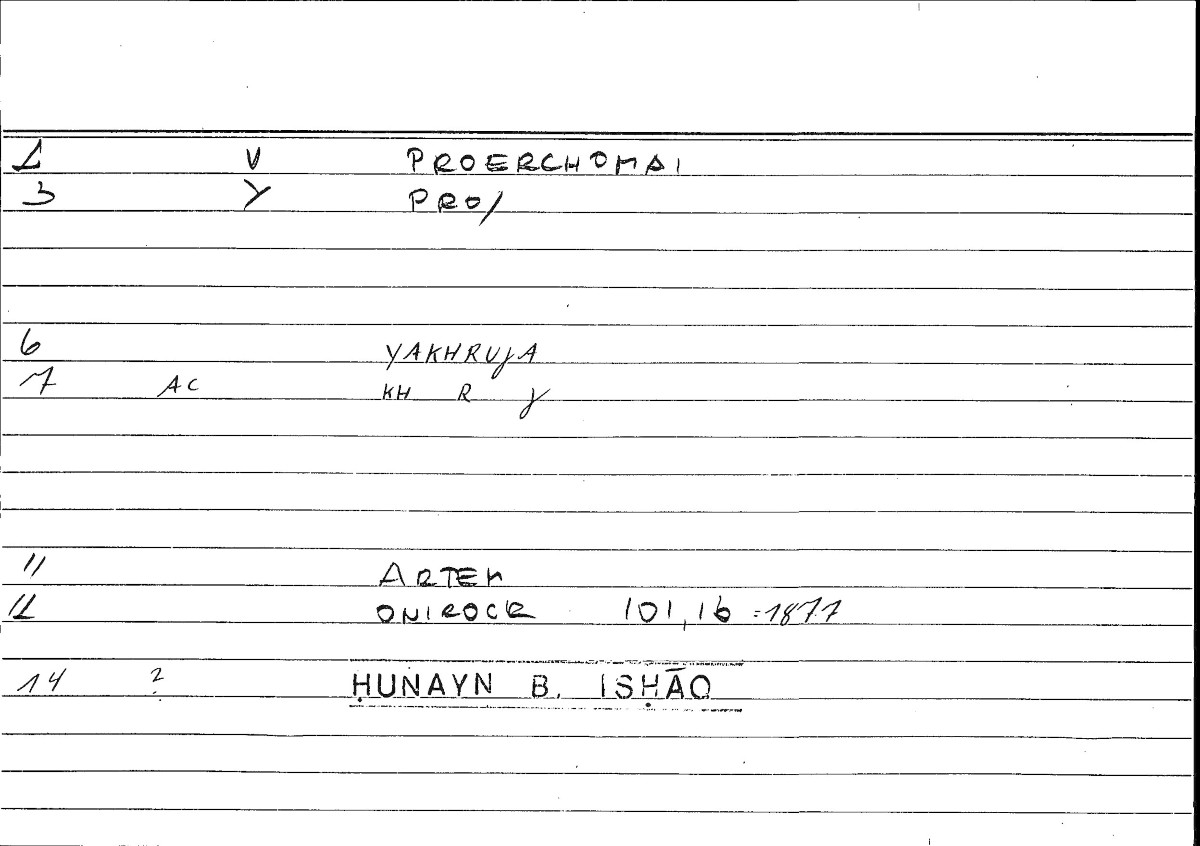 1 V PROERCHOMAI
3 Y PRO/
6 YAKHRUJA
7 AC KH R J
11 ARTEM
12 ONIROCR 101,16 =187.7
14 ? ḤUNAYN B. ISḤĀQ